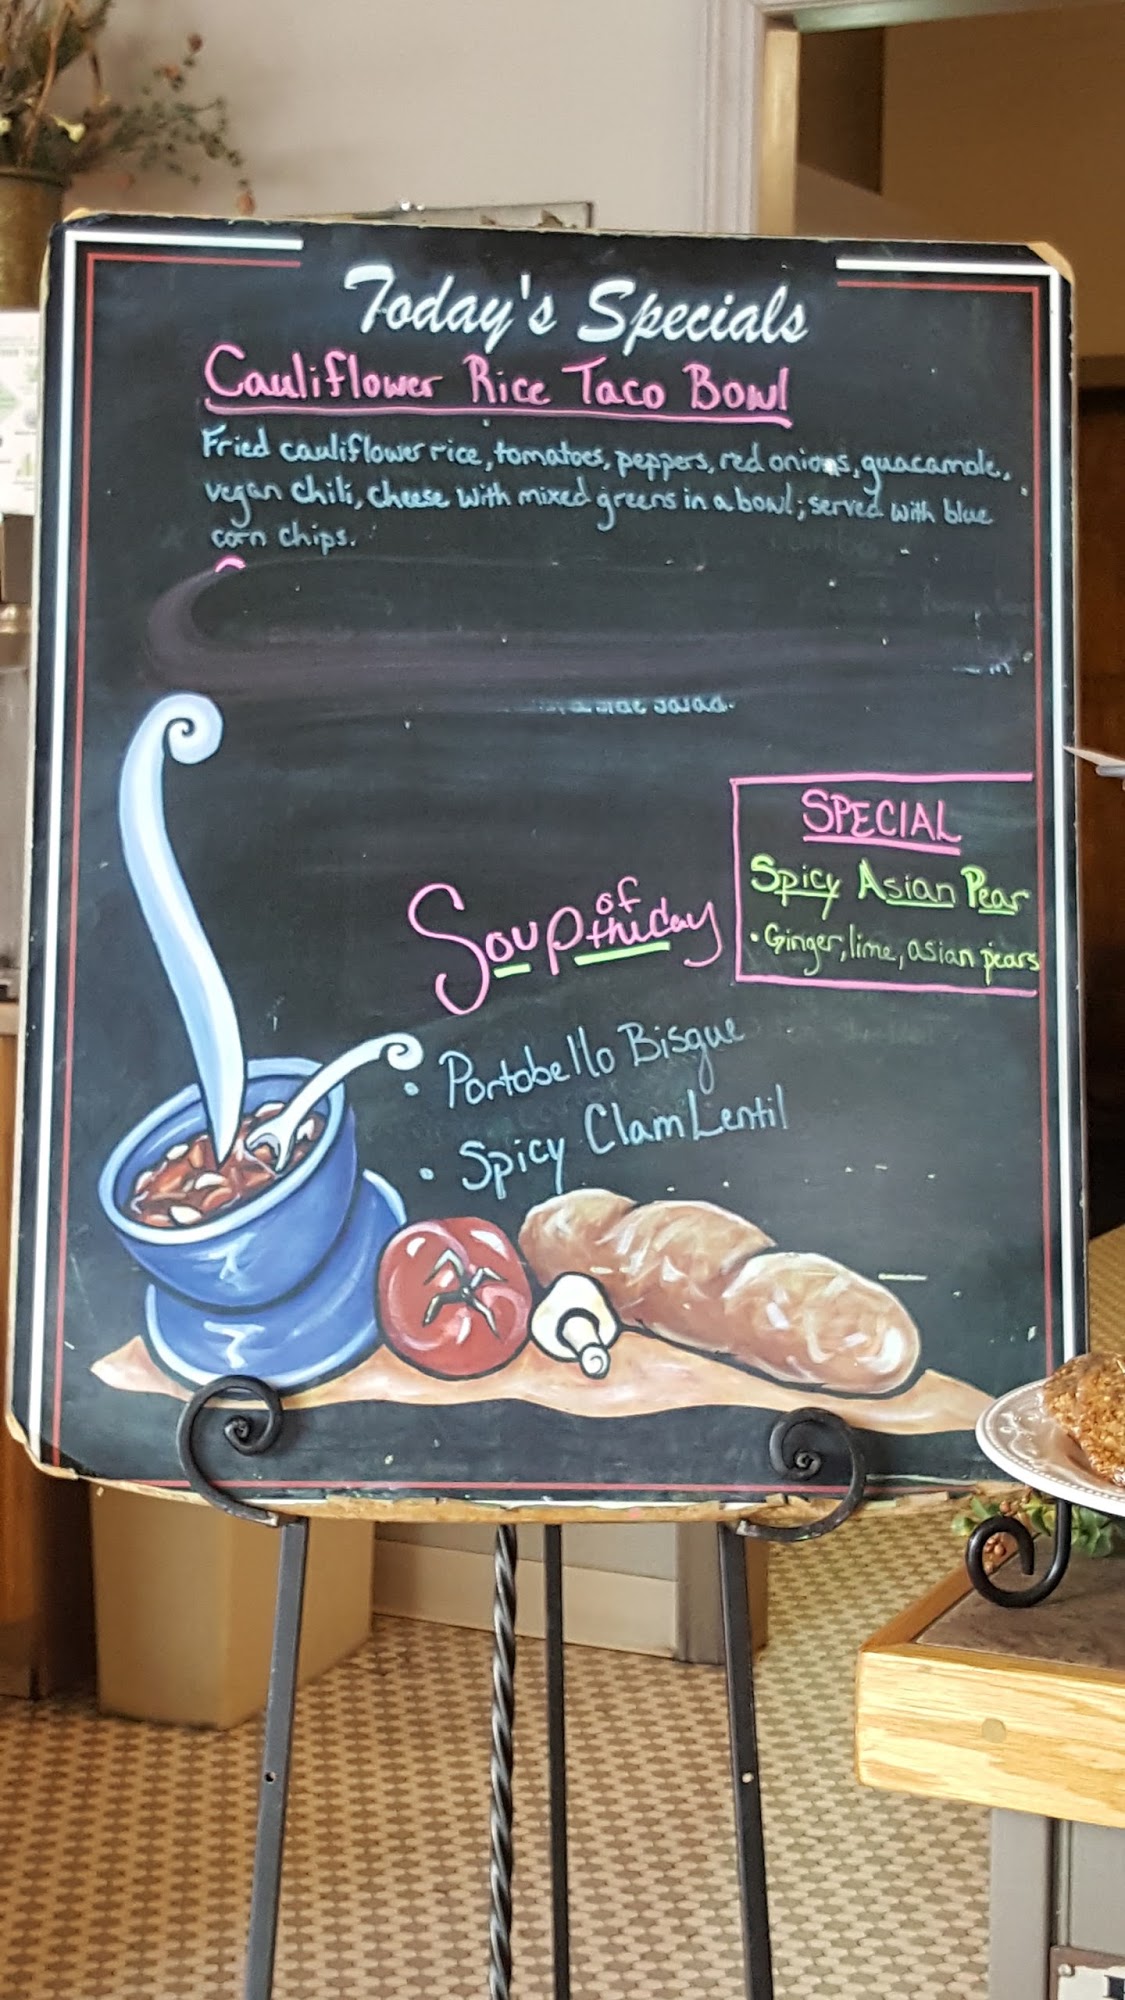 Today's Specials
Cauliflower Rice Taco Bowl
Fried cauliflower rice, tomatoes, peppers, red onions, guacamole,
vegan chili, cheese with mixed greens in a bowl; served with blue
corn chips.
salad.
SPECIAL
Spicy Asian Pear
• Ginger, lime, asian pears
Soup of the day
• Portobello Bisque
• Spicy Clam Lentil